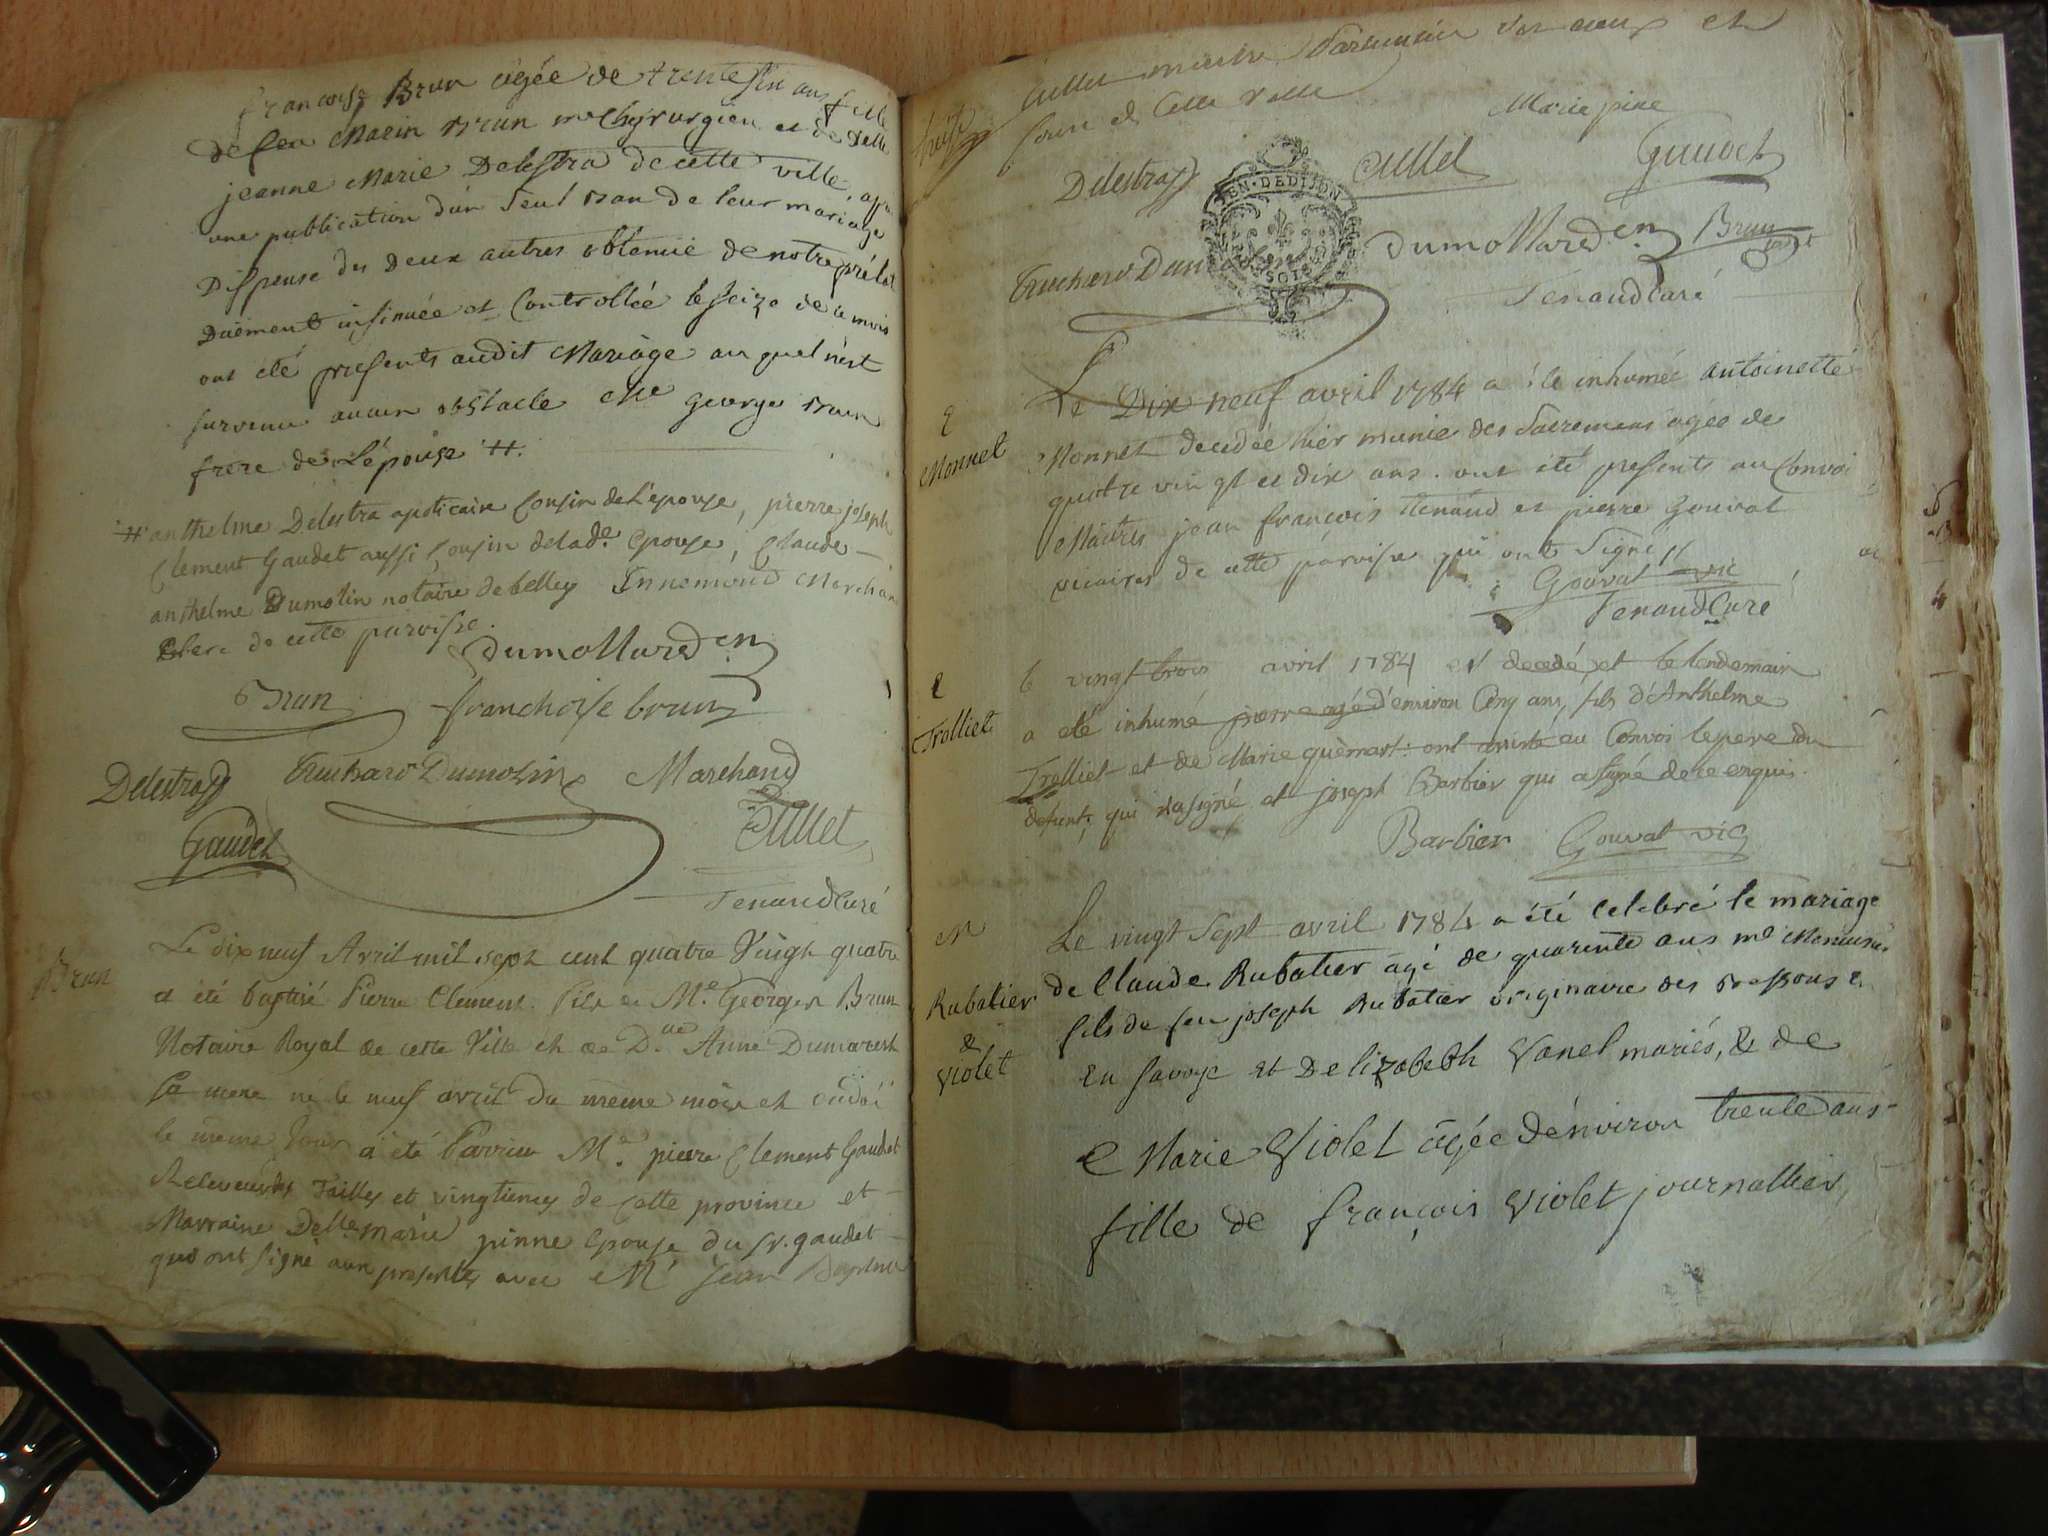 françoise Brun agée de trente six ans fille
de feu Marin Brun me Chyrurgien et de Delle
jeanne Marie Delestra de cette ville, apr
une publication d'un seul ban de leur mariage
Dispense des deux autres obtenue de notre prélat
Duëment insinuée et Controllée le seize de ce mois
ont été presents audit Mariage au quel n'est
survenu aucun obstacle Me george Brun
frere de L'épouse #.
# anthelme Delestra apoticaire Cousin de L'epouse, pierre joseph
Clement Gaudet aussi Cousin de lade. Epouse, Claude
anthelme Dumolin notaire de belley Innemond Marchan
Clerc de cette paroisse.
Dumollard en
Brun franchoise brun
Delestra Truchard Dumolin Marchand
Gaudet Cullet
Tenand Curé
Brun
Le dix neuf Avril mil sept cent quatre Vingt quatre
a été baptisé Pierre Clement fils de Me. Georges Brun
Notaire Royal de cette Ville et de Dlle Anne Dumarest
sa mere né le neuf avril du meme mois et
le meme jour a été Parrein Me. pierre Clement Gaudet
Receveur des Tailles et vingtiemes de cette province et
Marraine Delle marie pinne Epouse du sr. gaudet
qui ont signé aux presentes avec Me jean Baptiste
Cullet
cours et Celle
Marie pine
Delestra Cullet Gaudet
GEN. DE DIJON
SOLS
Truchard Dumolin Dumollard en Brun
Tenand Curé
Monnet
Le Dix neuf avril 1784 a été inhumée antoinette
Monnet decedée hier munie des Sacremens agée de
quatre vingt et dix ans. ont été presents au Convoi
Maitres jean françois Tenand et pierre Gouvat
vicaires de cette paroisse qui ont Signé
Gouvat vic
Tenand Curé
Trolliet
le vingt trois avril 1784 est decedé, et le lendemain
a eté inhumé pierre agé d'environ Cinq ans, fils d'Anthelme
Trolliet et de Marie guemart: ont assisté au Convoi le pere du
defunt, qui n'a signé et joseph Barbier qui a signé de ce enquis.
Barbier Gouvat vic
M
Rubatier
&
Violet
Le vingt Sept avril 1784 a été Celebré le mariage
de Claude Rubatier agé de quarente ans me Menuisier
fils de feu joseph Rubatier originaire des
En Savoye et Delizabeth Vanel mariés, & de
Marie Violet agée d'environ trente ans
fille de françois Violet journallier,